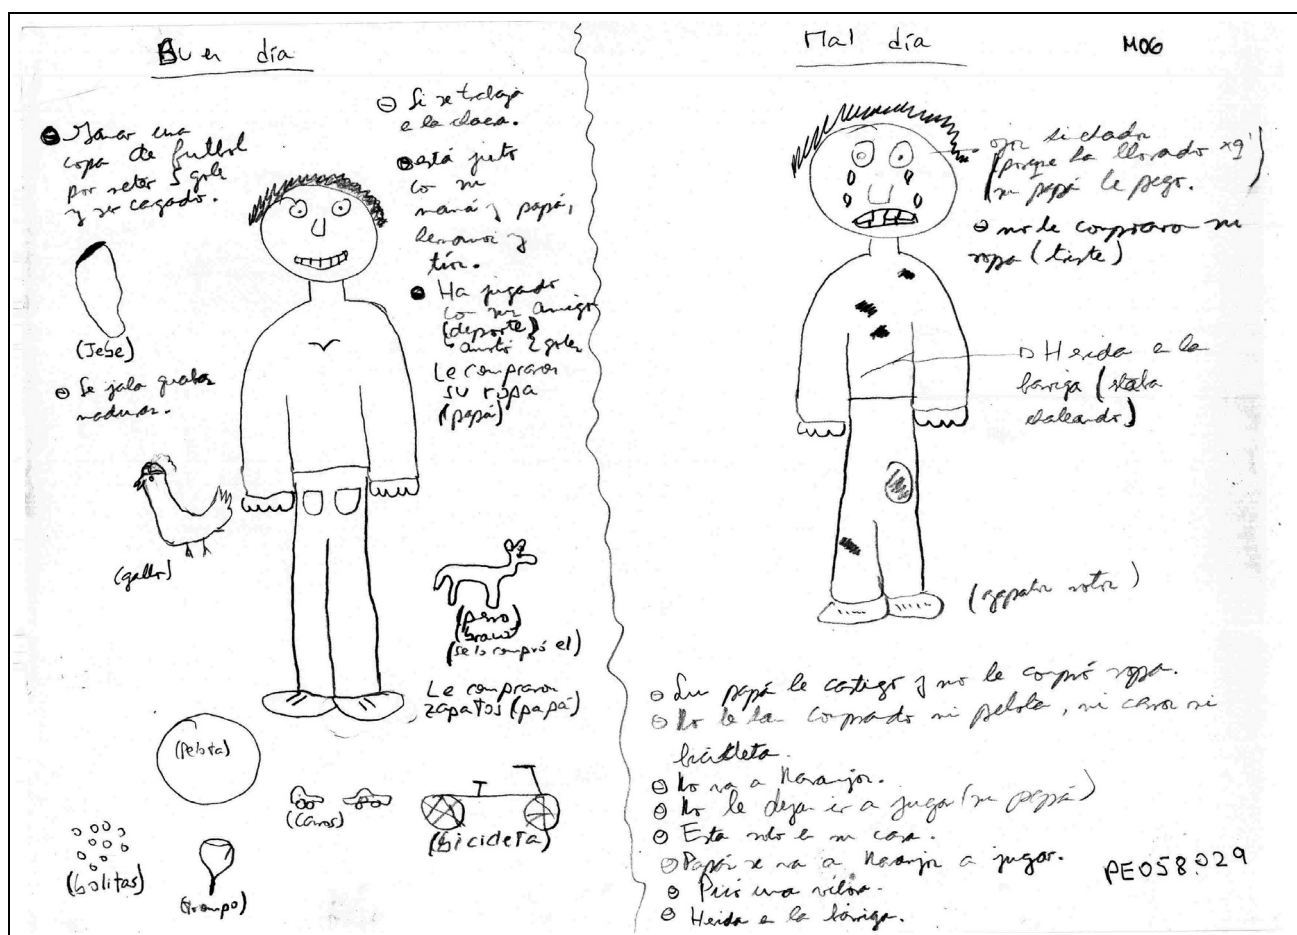 Buen día
Ganar una
copa de futbol
por meter 5 goles
y ser cargado.
(Jebe)
Se jala guabas
maduras.
(gallo)
Si se trabaja
e la chacra.
está juto
con su
mamá y papá,
hermanos y
tíos.
Ha jugado
con su amigo
(deporte)
anotó 2 goles
Le compraron
su ropa
(papá)
(perro)
(bravo)
(se lo compró el)
Le compraron
zapatos (papá)
(Pelota)
(Carros)
(bicicleta)
(bolitas)
(trompo)
Mal día
M06
ojos
(porque ha llorado xq'
su papá le pegó.)
no le compraron su
ropa (triste)
Herida e la
barriga (estaba
)
(zapatos rotos)
Su papá le castigo y no le compró ropa.
No le han comprado ni pelota, ni carros ni
bicicleta.
No va a Naranjos.
No le dejan ir a jugar (su papá)
Esta solo en su casa.
Papá se va a Naranjos a jugar.
Picó una víbora.
Herida e la barriga.
PE058.029